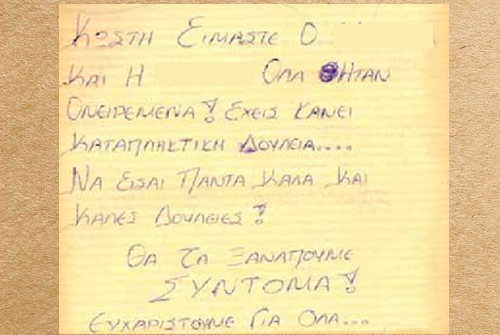 ΚΩΣΤΗ ΕΙΜΑΣΤΕ Ο
ΚΑΙ Η ΟΛΑ ΗΤΑΝ
ΟΝΕΙΡΕΜΕΝΑ! ΕΧΕΙΣ ΚΑΝΕΙ
ΚΑΤΑΠΛΗΚΤΙΚΗ ΔΟΥΛΕΙΑ....
ΝΑ ΕΙΣΑΙ ΠΑΝΤΑ ΚΑΛΑ ΚΑΙ
ΚΑΛΕΣ ΔΟΥΛΕΙΕΣ!
ΘΑ ΤΑ ΞΑΝΑΠΟΥΜΕ
ΣΥΝΤΟΜΑ!
ΕΥΧΑΡΙΣΤΟΥΜΕ ΓΙΑ ΟΛΑ...